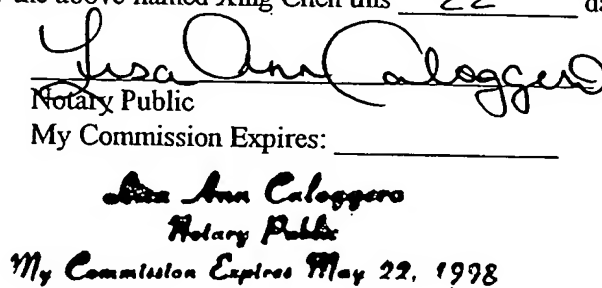 the above named Xing Chen this 22 da
Lisa Ann Caloggero
Notary Public
My Commission Expires:
Lisa Ann Caloggero
Notary Public
My Commission Expires May 22, 1998